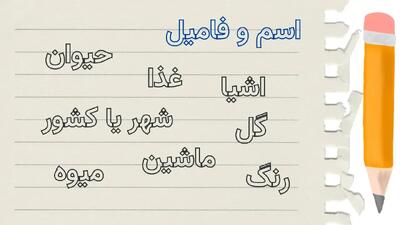 اسم و فامیل
حیوان
غذا
اشیا
شهر یا کشور
گل
ماشین
میوه
رنگ